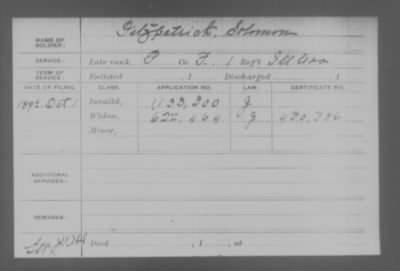 Fitzpatrick, Solomon
NAME OF SOLDIER:
SERVICE: Late rank, P Co. F, 1 Reg't Ill Cav
TERM OF SERVICE: Enlisted , 1 Discharged , 1
DATE OF FILING. CLASS. APPLICATION NO. LAW. CERTIFICATE NO.
1892. Oct 1. Invalid, 1133,300 J
Widow, 622,464 J 430,396
Minor,
ADDITIONAL SERVICES:
REMARKS:
Died , 1 , at